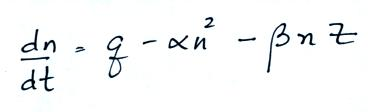 dn/dt = q - αn² - βnZ